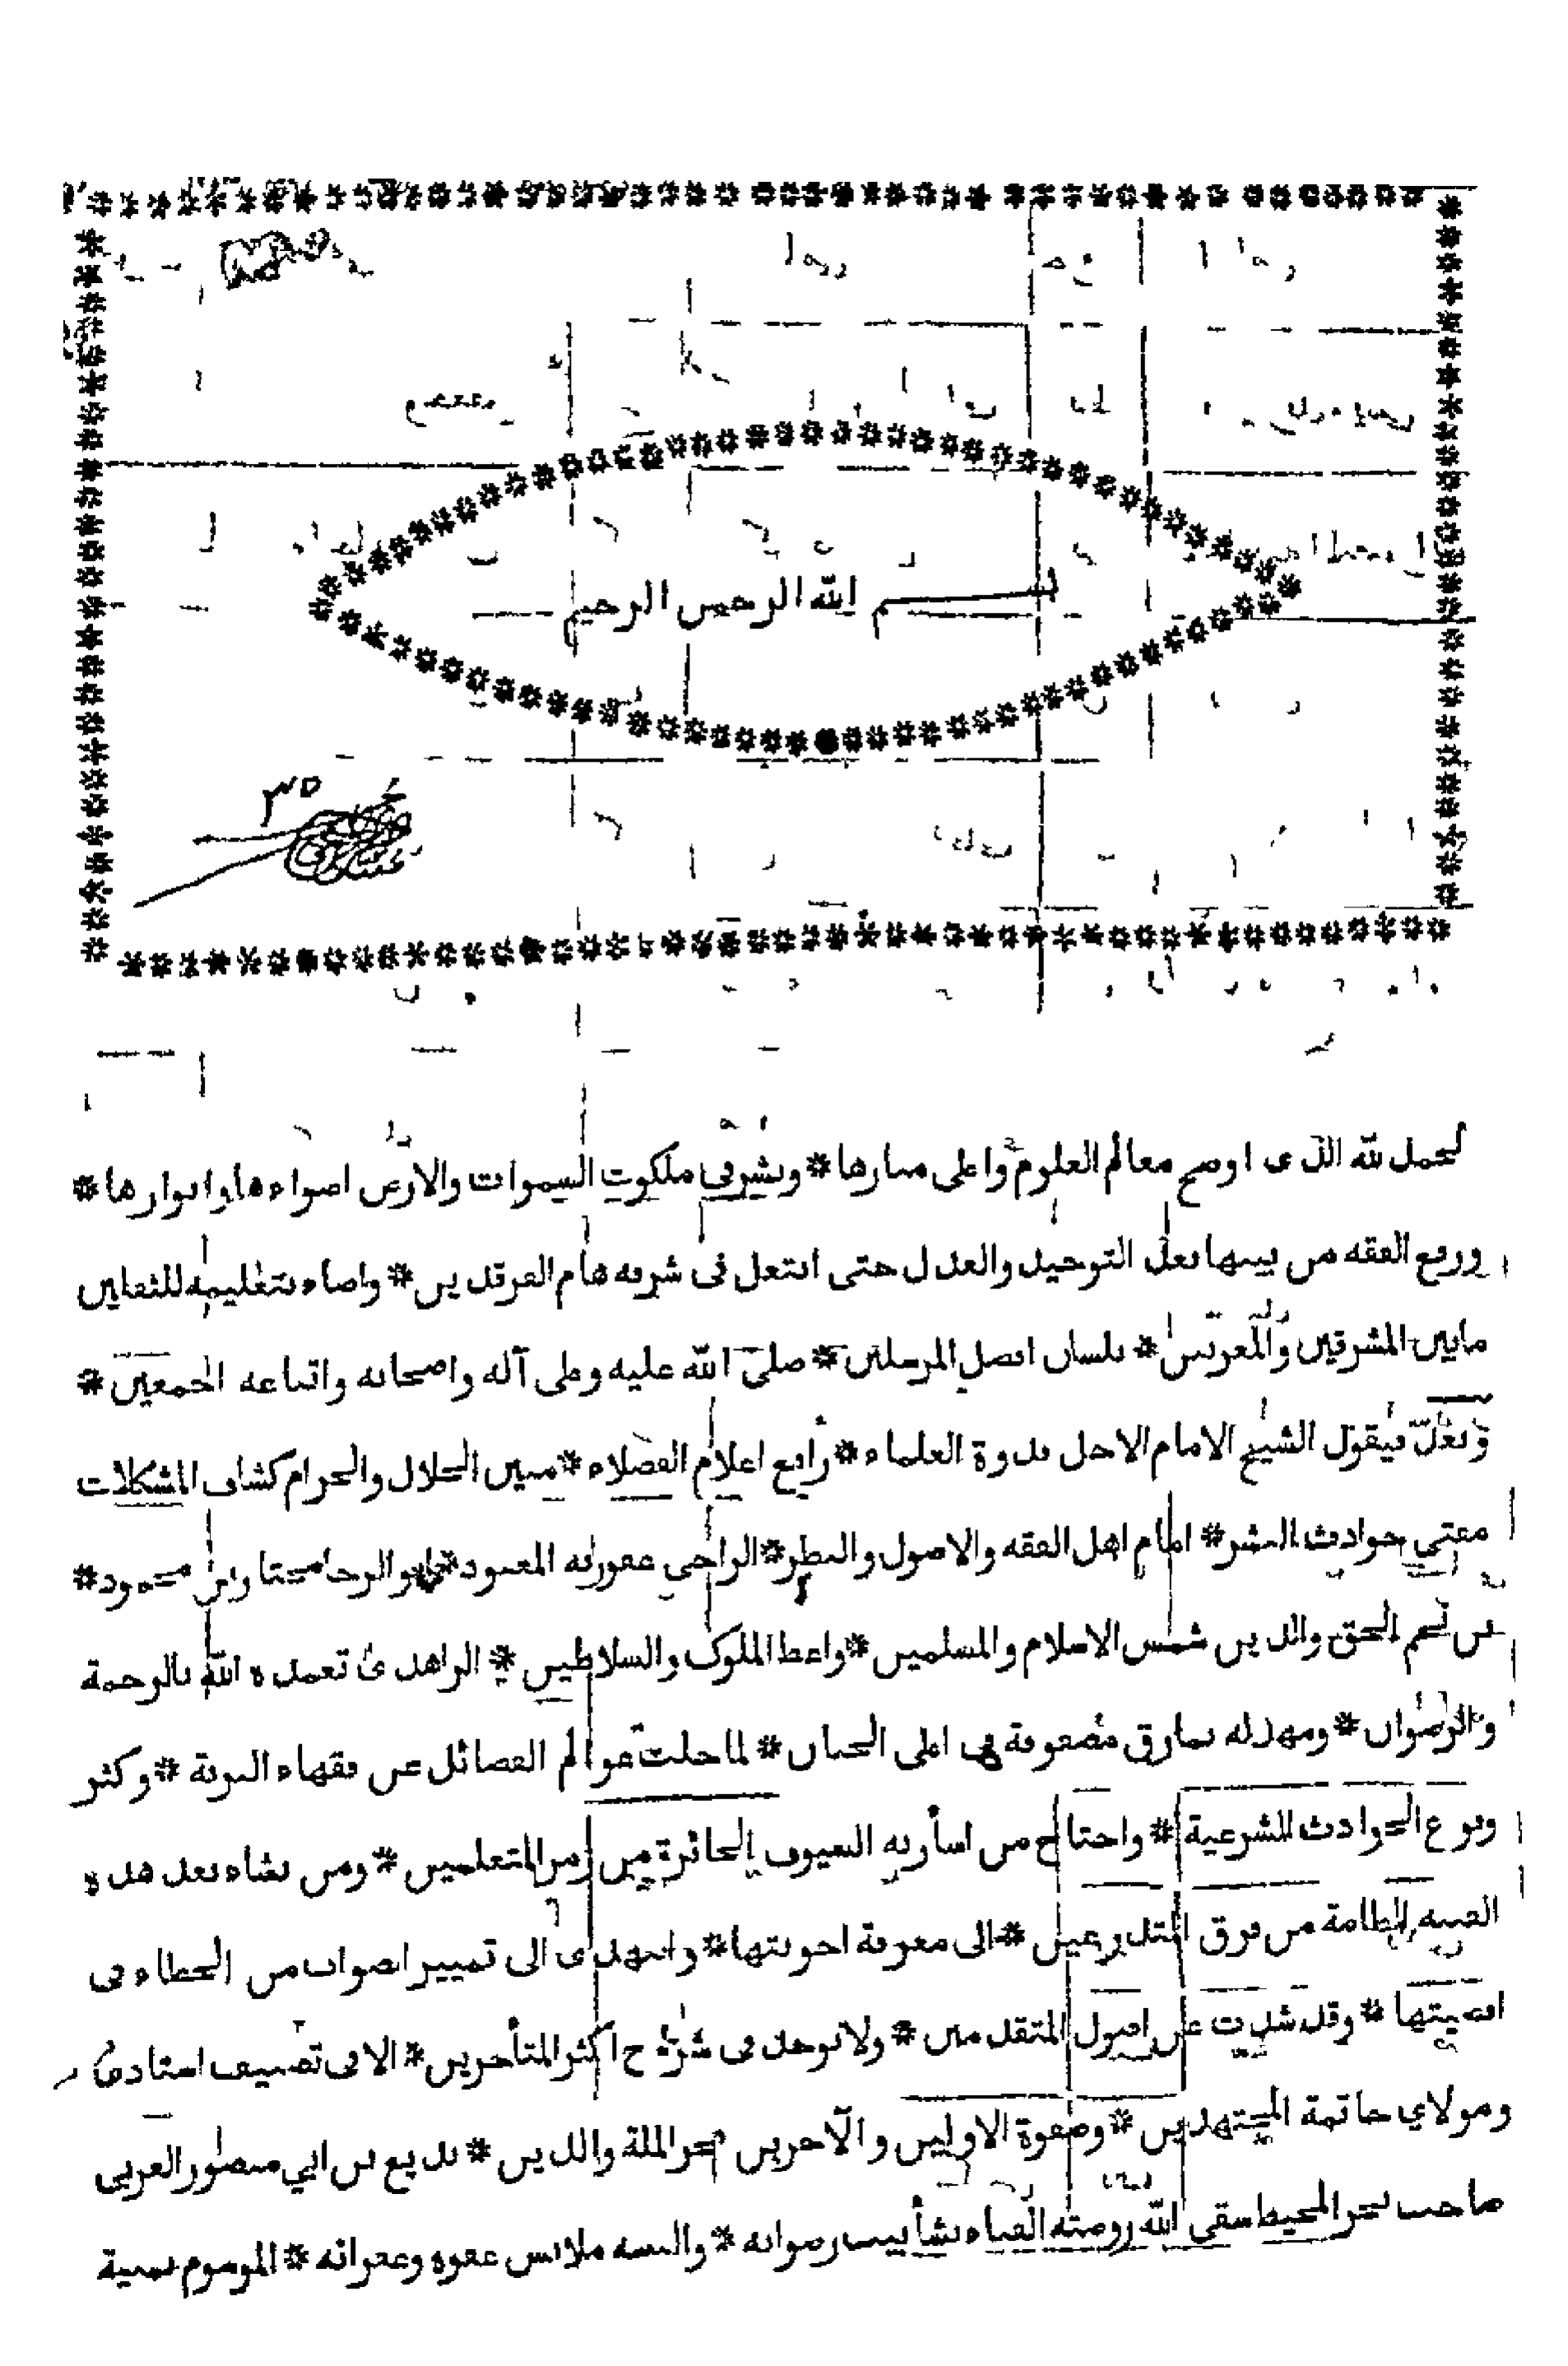 بسم الله الرحمن الرحيم
٣٥
الحمد لله الذى اوضح معالم العلوم واعلى منارها * وبشر فى ملكوت السموات والارض اضواءها وانوارها *
ورفع الفقه من بينها بعل التوحيد والعدل حتى انتعل فى شرفه هام الفرقدين * واضاء بتعليمه للثقلين
مابين المشرقين والمغربين * بلسان افضل المرسلين * صلى الله عليه وعلى آله واصحابه واتباعه اجمعين *
وبعد فيقول الشيخ الامام الاجل قدوة العلماء * رافع اعلام الفضلاء * مبين الحلال والحرام كشاف المشكلات
مفتي حوادث البشر * امام اهل الفقه والاصول والنظر * الراجي عفو ربه المعبود * ابو الرجا مختار بن محمود *
بن نجم الحق والدين شمس الاسلام والمسلمين * واعظ الملوك والسلاطين * الزاهدى تغمده الله بالرحمة
والرضوان * ومهد له نمارق مصفوفة فى اعلى الجنان * لما خلت عوالم الفضائل عن فقهاء البرية * وكثر
وقوع الحوادث الشرعية * واحتاج من اسأر به السيوف الجائرة من زمر المتعلمين * ومن نشاء بعد هذه
الطامة من فرق المتدرعين * الى معرفة اجوبتها * واستهدى الى تمييز الصواب من الخطاء فى
اقضيتها * وقد شذت عن اصول المتقدمين * ولا توجد فى شراح اكثر المتأخرين * الا فى تصنيف استادى
ومولاي خاتمة المجتهدين * وصفوة الاولين والآخرين فخر الملة والدين * بديع بن ابي منصور العربى
صاحب بحر المحيط سقى الله روضته الغناء بشأبيب رضوانه * والبسه ملابس عفوه وغفرانه * الموسوم بمنية